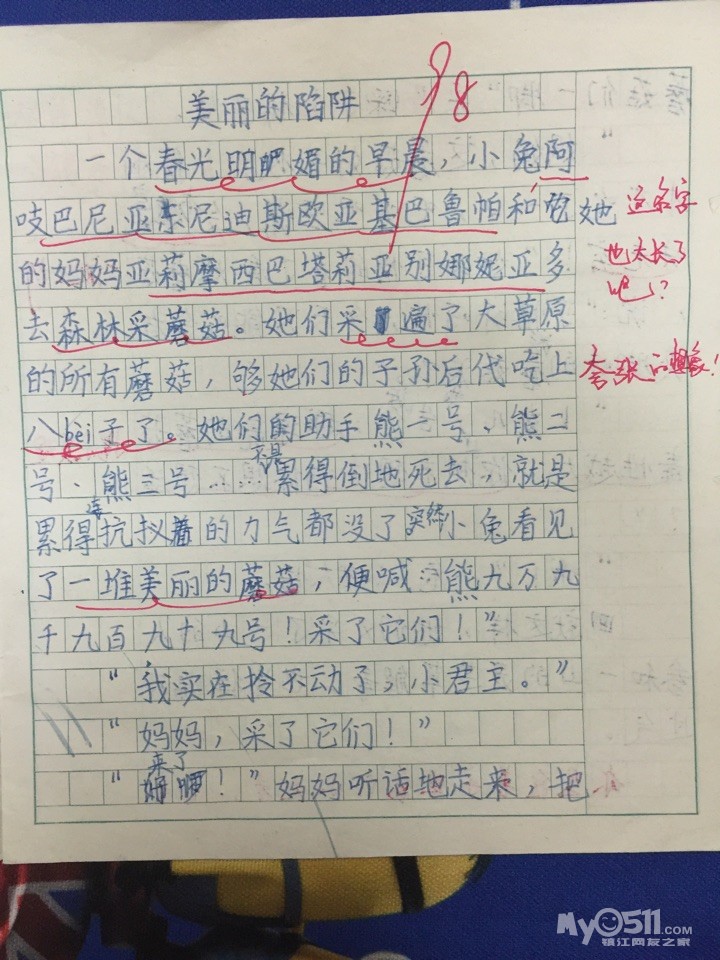 美丽的陷阱
98
一个春光明媚的早晨,小兔阿
吱巴尼亚东尼迪斯欧亚基巴鲁帕和她
的妈妈亚莉摩西巴塔莉亚别娜妮亚多
去森林采蘑菇。她们采遍了大草原
的所有蘑菇,够她们的子孙后代吃上
八bèi子了。她们的助手熊一号、熊二
号、熊三号……不是累得倒地死去,就是
累得连抗拟着的力气都没了突然小兔看见
了一堆美丽的蘑菇,便喊:熊九万九
千九百九十九号!采了它们!”
“我实在拎不动了,小君主。”
“妈妈,采了它们!”
“来了!”妈妈听话地走来,把
这名字
也太长了
吧!?
夸张的想象!
My0511.com
镇江网友之家